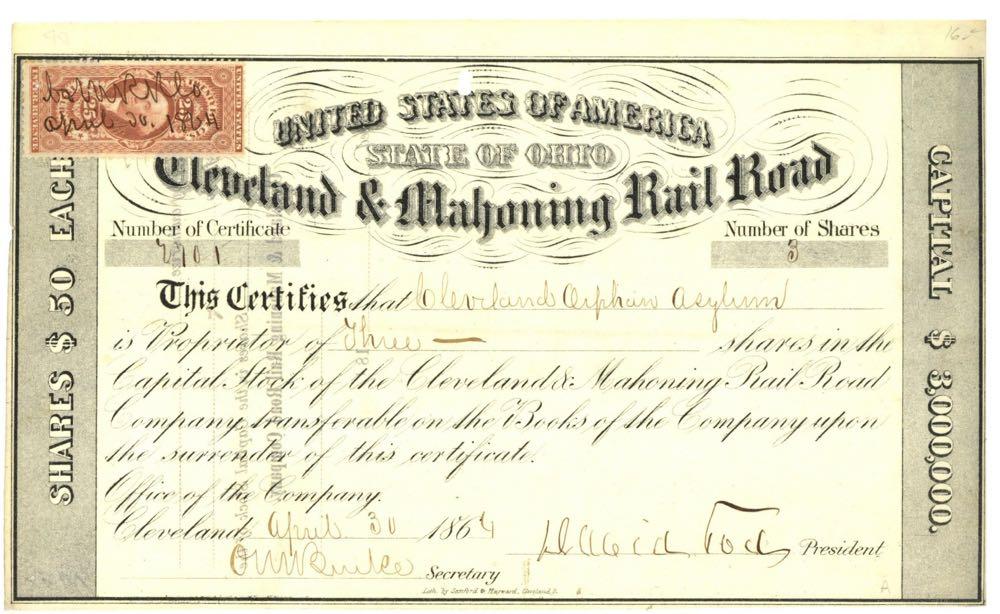 UNITED STATES OF AMERICA
STATE OF OHIO
Cleveland & Mahoning Rail Road
Number of Certificate
Number of Shares
3
This Certifies that Cleveland Orphan Asylum
is Proprietor of Three — shares in the
Capital Stock of the Cleveland & Mahoning Rail Road
Company, transferable on the Books of the Company upon
the surrender of this certificate.
Office of the Company.
Cleveland, April 30 1864
David Tod President
Secretary
Lith. by Sanford & Hayward, Cleveland, O.
SHARES $ 50 EACH
CAPITAL $ 3,000,000.
April 30. 1864
25